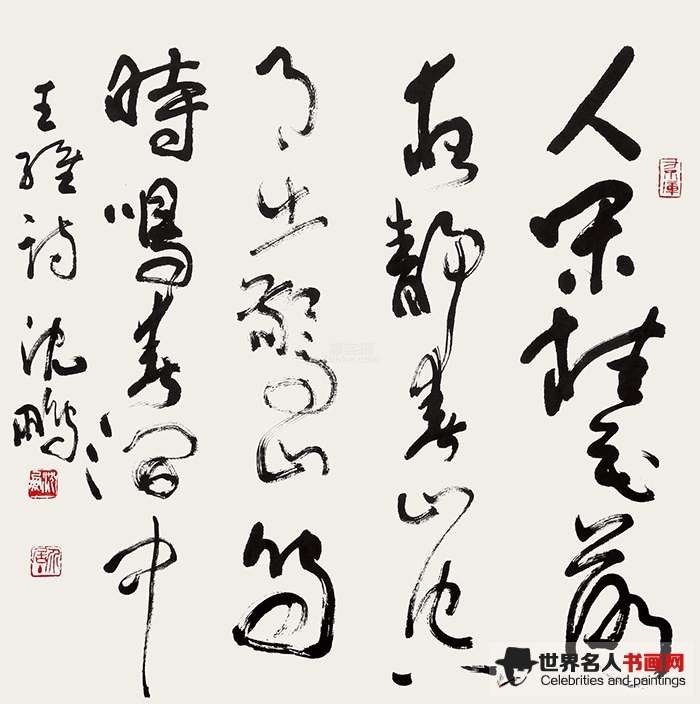 人閑桂花落
夜靜春山空
月出驚山鳥
時鳴春澗中
王維詩 沈鵬
世界名人书画网
Celebrities and paintings